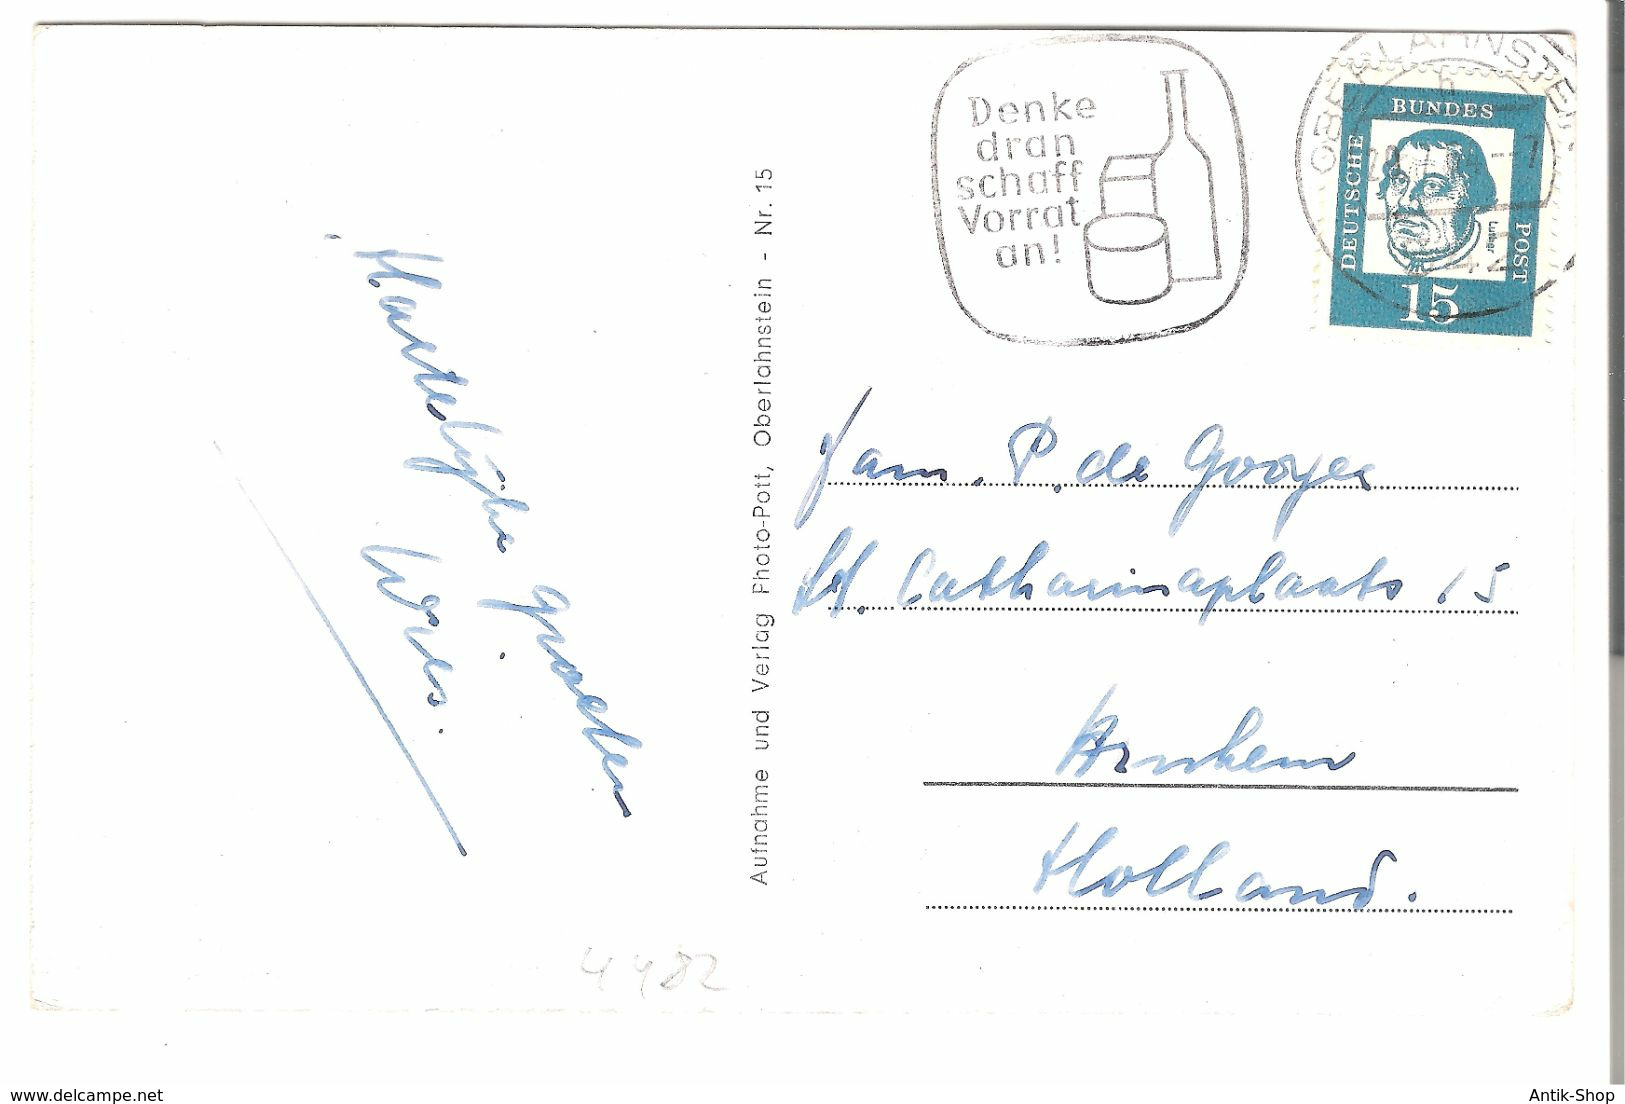 Denke
dran
schaff
Vorrat
an!
OBERLAHNSTEIN
DEUTSCHE
BUNDES
POST
Luther
15
Hartelijke groeten
Aufnahme und Verlag Photo-Pott, Oberlahnstein - Nr. 15
Fam. P. de Gooyer
St. Catharinaplaats 15
Arnhem
Holland.
4482
delcampe.net
Antik-Shop